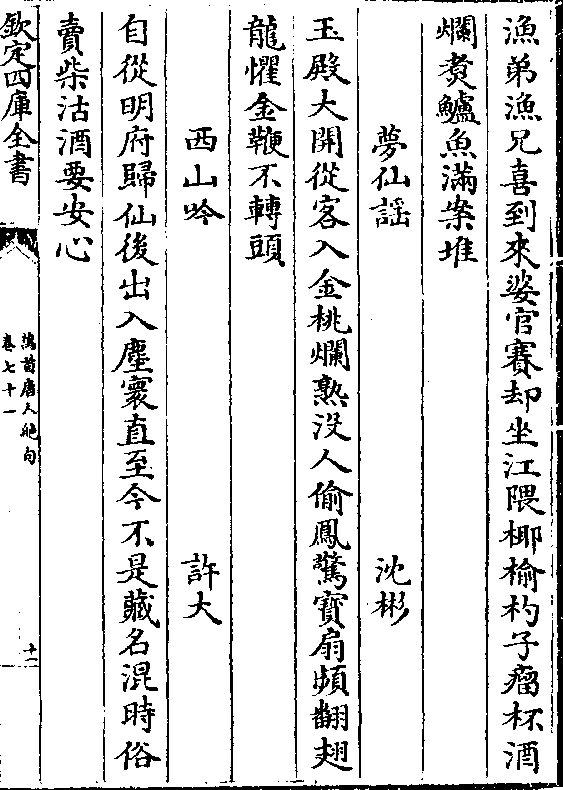 漁弟漁兄喜到來婆官賽却坐江隈椰榆杓子瘤杯酒
爛煑鱸魚滿案堆
夢仙謡 沈彬
玉殿大開從客入金桃爛熟没人偷鳳驚寶扇頻翻翅
龍懼金鞭不轉頭
西山吟 許大
自從明府歸仙後出入塵寰直至今不是藏名混時俗
賣柴沽酒要安心
欽定四庫全書
萬首唐人絶句
卷七十一
十二